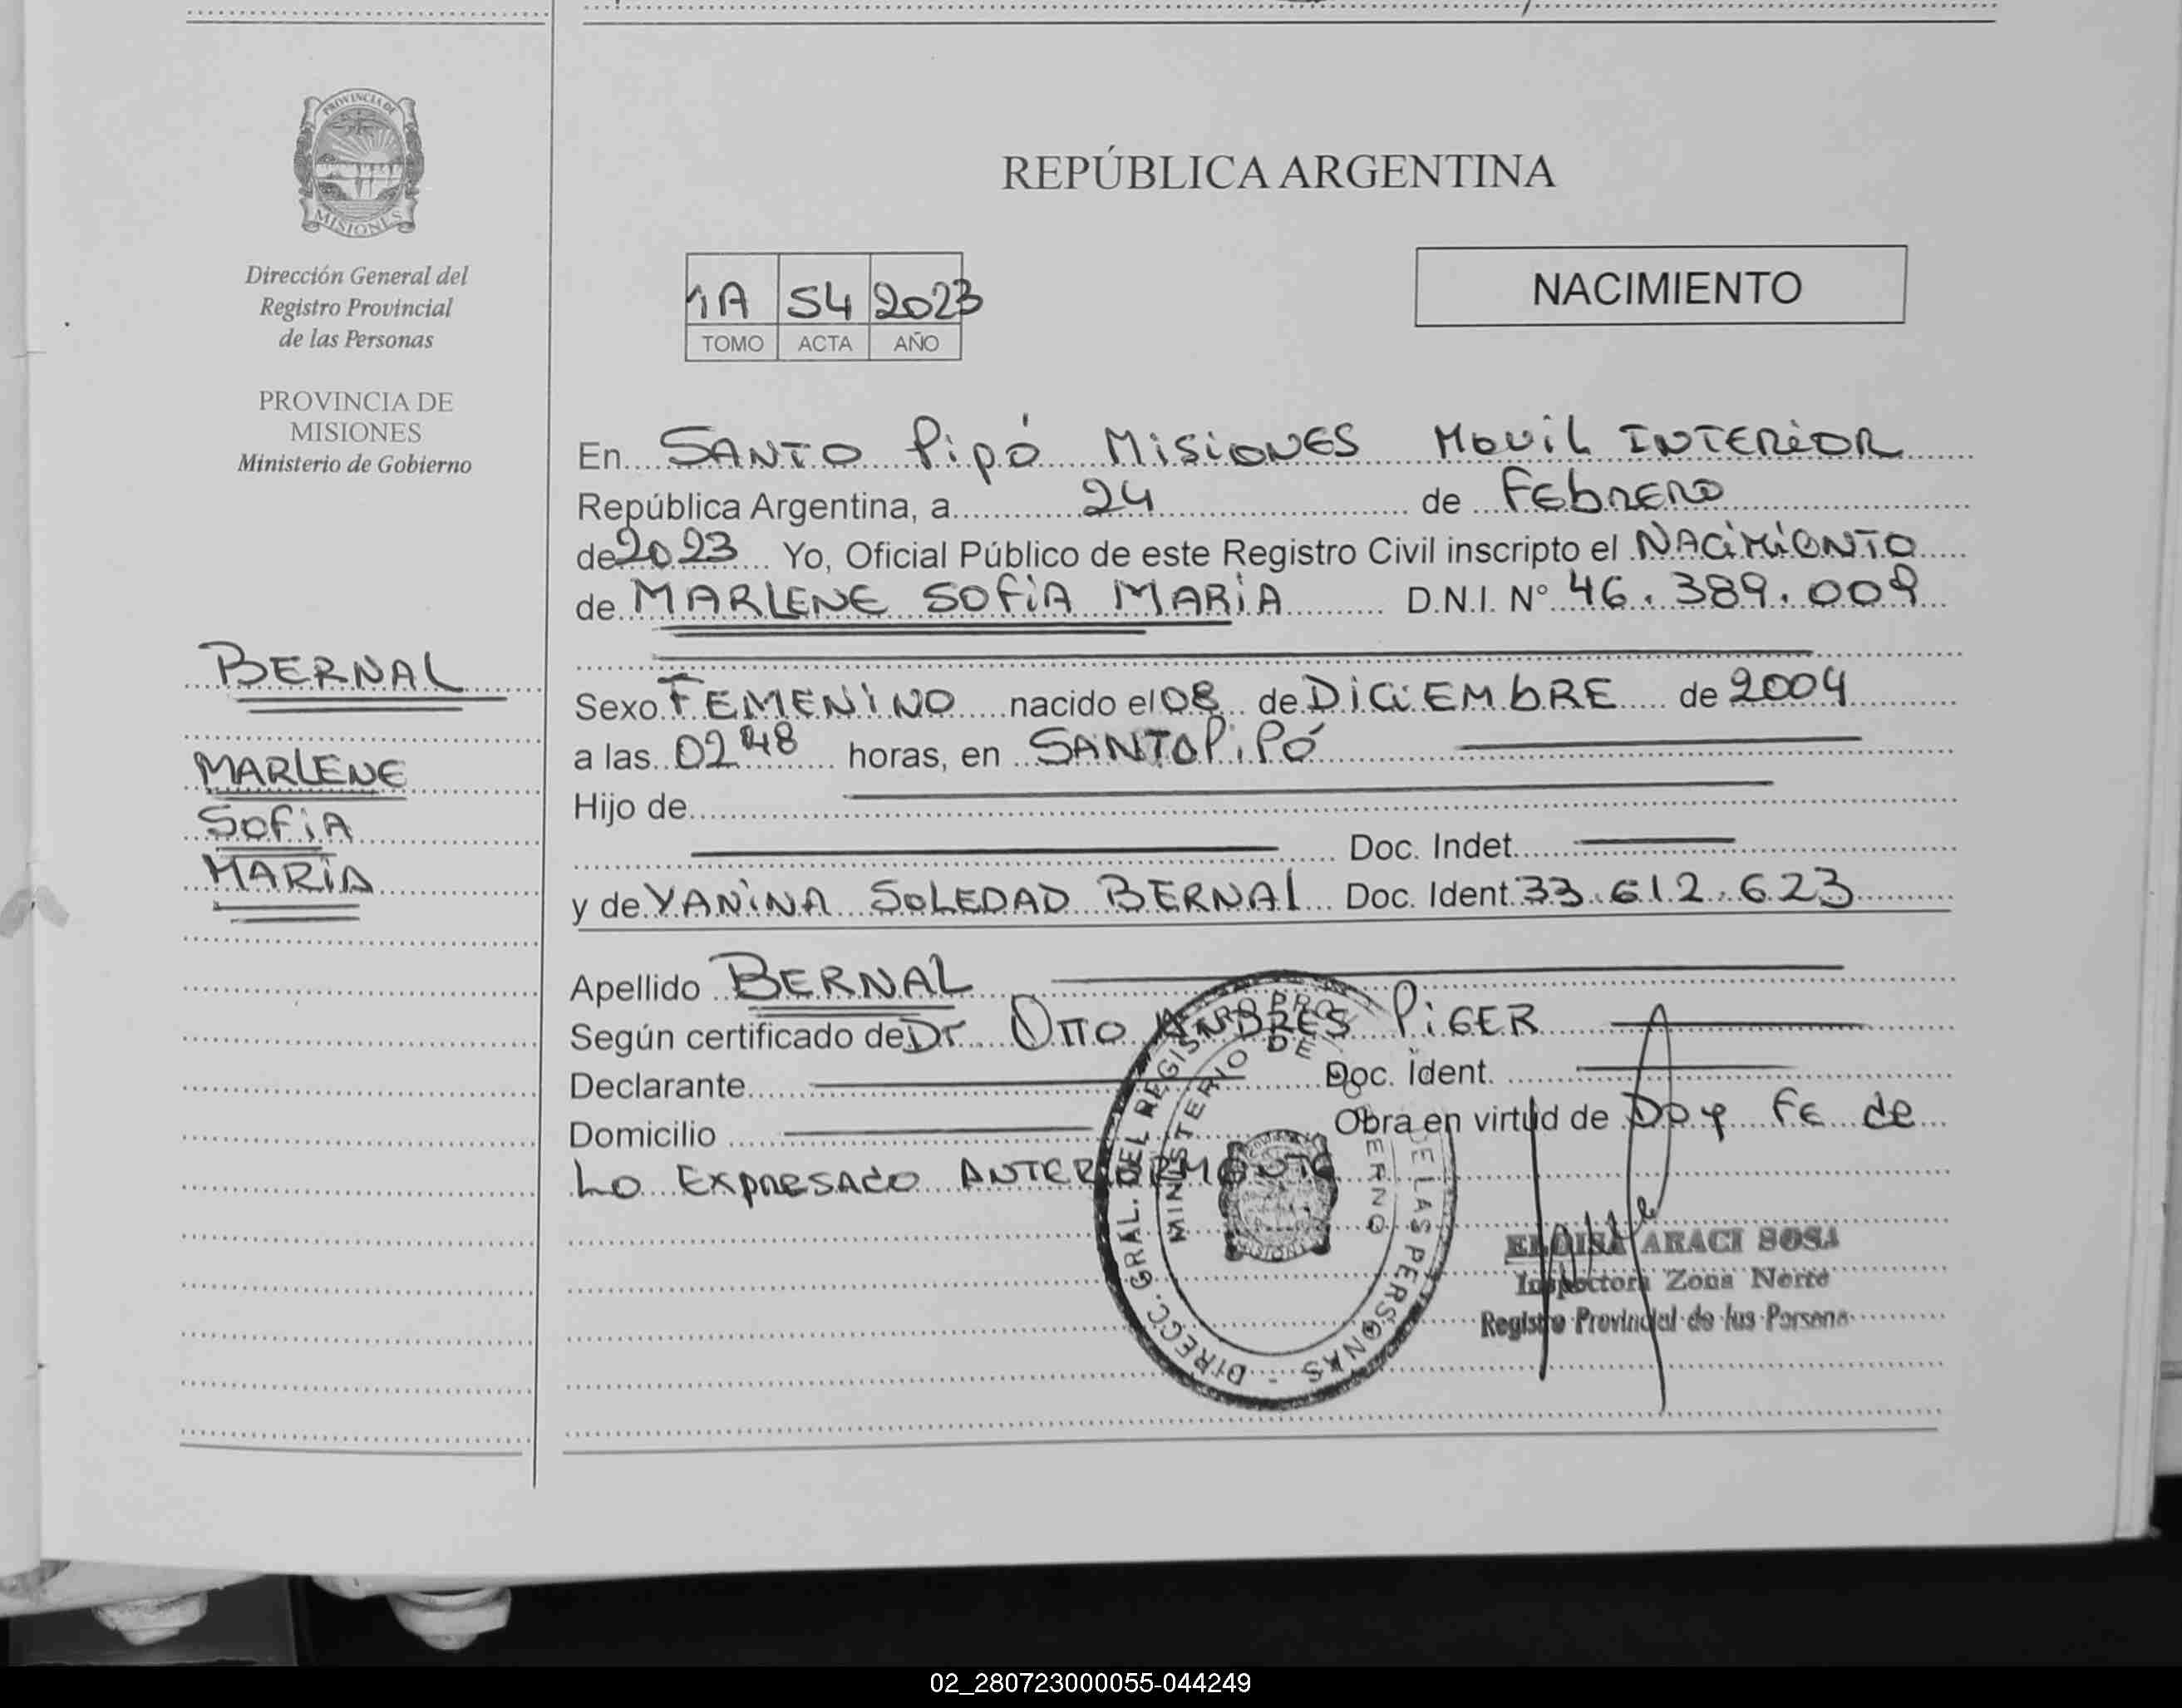 PROVINCIA DE
MISIONES
Dirección General del
Registro Provincial
de las Personas
PROVINCIA DE
MISIONES
Ministerio de Gobierno
BERNAL
MARLENE
SOFIA
MARIA
REPÚBLICA ARGENTINA
1A 54 2023
TOMO ACTA AÑO
NACIMIENTO
En SANTO PIPÓ MISIONES MOVIL INTERIOR
República Argentina, a 24 de FEBRERO
de 2023 Yo, Oficial Público de este Registro Civil inscripto el NACIMIENTO
de MARLENE SOFIA MARIA D.N.I. N° 46.389.009
Sexo FEMENINO nacido el 08 de DICIEMBRE de 2004
a las 02 48 horas, en SANTO PIPÓ
Hijo de
Doc. Indet.
y de YANINA SOLEDAD BERNAL Doc. Ident. 33.612.623
Apellido BERNAL
Según certificado de Dr. OTTO ANDRES PIGER
Declarante Doc. Ident.
Domicilio Obra en virtud de Doy FE de
LO EXPRESADO ANTERIORMENTE
DIRECC. GRAL. DEL REGISTRO PROV. DE LAS PERSONAS
MINISTERIO DE GOBIERNO
MISIONES
ELOISA ARACI SOSA
Inspectora Zona Norte
Registro Provincial de las Persona
02_280723000055-044249